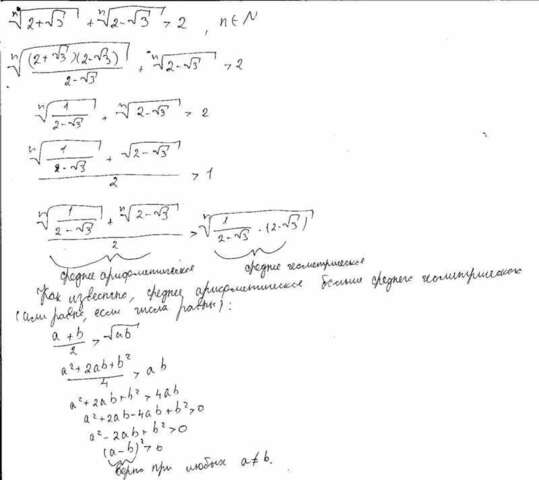 ⁿ√(2+√3) + ⁿ√(2-√3) > 2 , n ∈ N
ⁿ√((2+√3)(2-√3)/(2-√3)) + ⁿ√(2-√3) > 2
ⁿ√(1/(2-√3)) + ⁿ√(2-√3) > 2
(ⁿ√(1/(2-√3)) + √(2-√3))/2 > 1
(ⁿ√(1/(2-√3)) + ⁿ√(2-√3))/2 > ⁿ√(1/(2-√3) · (2-√3))
среднее арифметическое среднее геометрическое
Как известно, среднее арифметическое больше среднего геометрического
(или равно, если числа равны):
(a+b)/2 > √ab
(a²+2ab+b²)/4 > ab
a²+2ab+b² > 4ab
a²+2ab-4ab+b² > 0
a²-2ab+b² > 0
(a-b)² > 0
верно при любых a≠b.